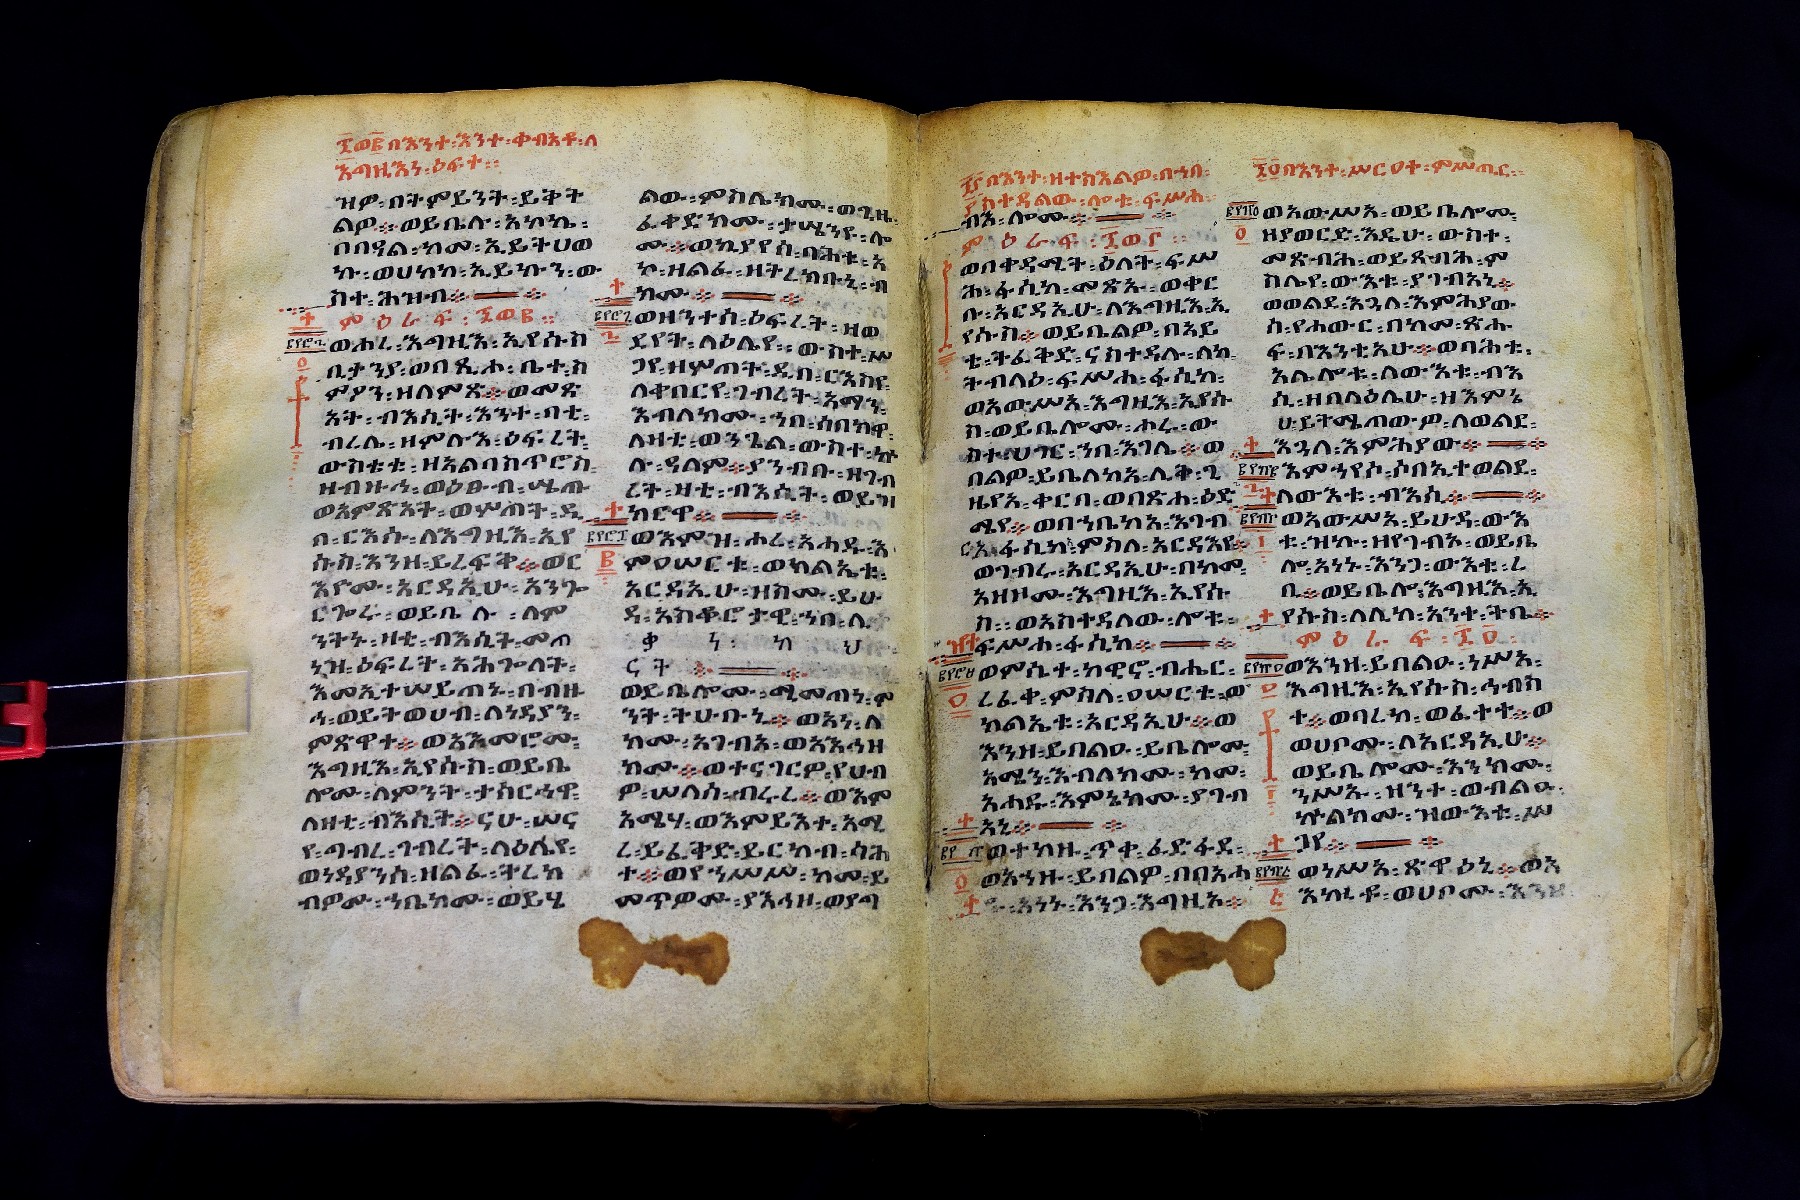 ፷ወ፪ በእንተ ፡ እንተ ፡ ቀብአቶ ፡ ለ
እግዚእነ ፡ ዕፍተ ።
ዝዎ ፡ በትምይንት ፡ ይቅት
ልዎ ። ወይቤሉ ፡ አኮኬ ፡
በበዓል ፡ ከመ ፡ ኢይትሀወ
ኩ ፡ ወሀከክ ፡ ኢይኩን ፡ ው
ስተ ፡ ሕዝብ ።
ምዕራፍ ፡ ፷ወ፪ ።
ወሖረ ፡ እግዚእ ፡ ኢየሱስ
ቢታንያ ፡ ወበጺሖ ፡ ቤተ ፡ ስ
ምዖን ፡ ዘለምጽ ። ወመጽ
አት ፡ ብእሲት ፡ እንተ ፡ ባቲ ፡
ብረሌ ፡ ዘምሉእ ፡ ዕፍረት ፡
ውስቴቱ ፡ ዘአልባስጥሮስ ፡
ዘብዙኅ ፡ ወዕፁብ ፡ ሤጡ
ወአምጽአት ፡ ወሦጠት ፡ ዲ
በ ፡ ርእሱ ፡ ለእግዚእ ፡ ኢየ
ሱስ ፡ እንዘ ፡ ይረፍቅ ። ወር
እዮሙ ፡ አርዳኢሁ ፡ አንጐ
ርጐሩ ፡ ወይቤሉ ፡ ለም
ንትኑ ፡ ዛቲ ፡ ብእሲት ፡ መጠ
ነዝ ፡ ዕፍረት ፡ አሕጐለት ፡
እመኢተሠይጠኑ ፡ በብዙ
ኅ ፡ ወይትወሀብ ፡ ለነዳያን ፡
ምጽዋተ ። ወአእመሮሙ ፡
እግዚእ ፡ ኢየሱስ ፡ ወይቤ
ሎሙ ፡ ለምንት ፡ ታስርኅዋ ፡
ለዛቲ ፡ ብእሲት ። ናሁ ፡ ሠና
የ ፡ ግብረ ፡ ገብረት ፡ ላዕሌየ ፡
ወነዳያንሰ ፡ ዘልፈ ፡ ትረክ
ብዎሙ ፡ ኀቤክሙ ፡ ወይሄ
ልው ፡ ምስሌክሙ ፡ ወጊዜ ፡
ፈቀድክሙ ፡ ታሤንዩ ፡ ሎ
ሙ ። ወኪያየሰ ፡ ባሕቱ ፡ አ
ኮ ፡ ዘልፈ ፡ ዘትረክቡኒ ፡ ብ
ክሙ ።
ወዘንተሰ ፡ ዕፍረት ፡ ዘወ
ደየት ፡ ላዕሌየ ፡ ውስተ ፡ ሥ
ጋየ ፡ ዘሦጠት ፡ ዲበ ፡ ርእስየ ፡
ለቀበርየ ፡ ገብረት ፡ አማን ፡
እብለክሙ ፡ ኀበ ፡ ሰበክዋ ፡
ለዛቲ ፡ ወንጌል ፡ ውስተ ፡ ኵ
ሉ ፡ ዓለም ። ያንብቡ ፡ ዘገብ
ረት ፡ ዛቲ ፡ ብእሲት ፡ ወይዝ
ክርዋ ።
ወእምዝ ፡ ሖረ ፡ አሐዱ ፡ እ
ምዐሠርቱ ፡ ወክልኤቱ ፡
አርዳኢሁ ፡ ዝስሙ ፡ ይሁ
ዳ ፡ አስቆሮታዊ ፡ ኀበ ፡ ሊ
ቃነ ፡ ካህ
ናት ።
ወይቤሎሙ ፡ ሚመጠነ ፡ ም
ንት ፡ ትሁቡኒ ። ወአነ ፡ ለ
ክሙ ፡ አገብእ ፡ ወአእኅዘ
ክሙ ። ወተናገርዎ ፡ የሀብ
ዎ ፡ ሠላሰ ፡ ብሩረ ። ወእም
አሜሃ ፡ ወእምይእተ ፡ አሚ
ረ ፡ ይፈቅድ ፡ ይርከብ ፡ ሳሕ
ተ ። ወየኀሥሥ ፡ ከመ ፡ ይ
መጥዎሙ ፡ ያእኅዞ ፡ ወያግ
፷፫ በእንተ ፡ ዘተክእልዎ ፡ በኀበ ፡
ያስተዳልው ፡ ሎቱ ፡ ፍሥሐ ፡
ብእ ፡ ሎሙ ።
ምዕራፍ ፡ ፷ወ፫ ።
ወበቀዳሚት ፡ ዕለት ፡ ፍሥ
ሕ ፡ ፋሲካ ፡ መጽኡ ፡ ወቀር
ቡ ፡ አርዳኢሁ ፡ ለእግዚእ ፡ ኢ
የሱስ ። ወይቤልዎ ፡ በአይ
ቴ ፡ ትፈቅድ ፡ ናስተዳሉ ፡ ለከ ፡
ትብላዕ ፡ ፍሥሐ ፡ ፋሲካ ፡
ወአውሥአ ፡ እግዚእ ፡ ኢየሱ
ስ ፡ ወይቤሎሙ ፡ ሖሩ ፡ ው
ስተ ፡ ሀገር ፡ ኀበ ፡ እገሌ ። ወ
በልዎ ፡ ይቤለከ ፡ ሊቅ ፡ ጊ
ዜየ ፡ ቀርበ ፡ ወበጽሐ ፡ ዕድ
ሜየ ። ወበኀቤከ ፡ እገብ
ር ፡ ፋሲካ ፡ ምስለ ፡ አርዳእየ ።
ወገብሩ ፡ አርዳኢሁ ፡ በከመ ፡
አዘዞሙ ፡ እግዚእ ፡ ኢየሱ
ስ ። ወአስተዳለው ፡ ሎቱ ፡
ፍሥሐ ፡ ፋሲካ ።
ወምሴተ ፡ ከዊኖ ፡ ብሔር ፡
ረፈቀ ፡ ምስለ ፡ ዐሠርቱ ፡ ወ
ክልኤቱ ፡ አርዳኢሁ ። ወ
እንዘ ፡ ይበልዑ ፡ ይቤሎሙ ፡
አሜን ፡ እብለክሙ ፡ ከመ ፡
አሐዱ ፡ እምኔክሙ ፡ ያገብ
አኒ ።
ወተከዙ ፡ ጥቀ ፡ ፈድፋደ ፡
ወአኀዙ ፡ ይበልዎ ፡ በበአሐ
ዱ ፡ አነኑ ፡ እንጋ ፡ እግዚኦ ።
፷፬ በእንተ ፡ ሥርዐተ ፡ ምሥጢር ።
ወአውሥአ ፡ ወይቤሎሙ ፡
ዘያወርድ ፡ እዴሁ ፡ ውስተ ፡
መጽብሕ ፡ ወይጸብሕ ፡ ም
ስሌየ ፡ ውእቱ ፡ ያገብአኒ ።
ወወልደ ፡ እጓለ ፡ እምሕያው
ሰ ፡ የሐውር ፡ በከመ ፡ ጽሑ
ፍ ፡ በእንቲአሁ ። ወባሕቱ ፡
አሌ ሎቱ ፡ ለውእቱ ፡ ብእ
ሲ ፡ ዘበላዕሌሁ ፡ ዘእምኔ
ሁ ይትሜጠውዎ ፡ ለወልደ ፡
እጓለ ፡ እምሕያው ።
እምኀየሶ ፡ ሶበ ኢተወልደ ፡
ለውእቱ ፡ ብእሲ ።
ወአውሥአ ፡ ይሁዳ ፡ ውእ
ቱ ፡ ዝኩ ፡ ዘያገብኦ ፡ ወይቤ
ሎ ፡ አነኑ ፡ እንጋ ፡ ውእቱ ፡ ረ
ቢ ። ወይቤሎ ፡ እግዚእ ፡ ኢ
የሱስ ፡ ለሊከ ፡ አንተ ፡ ትቤ ።
ምዕራፍ ፡ ፷፬ ።
ወእንዘ ፡ ይበልዑ ፡ ነሥአ ፡
እግዚእ ፡ ኢየሱስ ፡ ኅብስ
ተ ። ወባረከ ፡ ወፈተተ ። ወ
ወሀቦሙ ፡ ለአርዳኢሁ ።
ወይቤሎሙ ፡ እንከሙ ፡
ንሥኡ ፡ ዘንተ ፡ ወብልዑ ፡
ኵልክሙ ፡ ዝውእቱ ፡ ሥ
ጋየ ።
ወነሥአ ፡ ጽዋዐኒ ። ወአ
እኰቶ ፡ ወሀቦሙ ፡ እንዘ